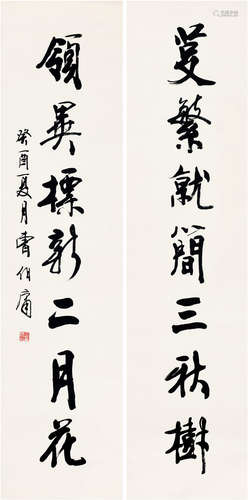 芟繁就簡三秋樹
領異標新二月花
癸酉夏月曹伯庸